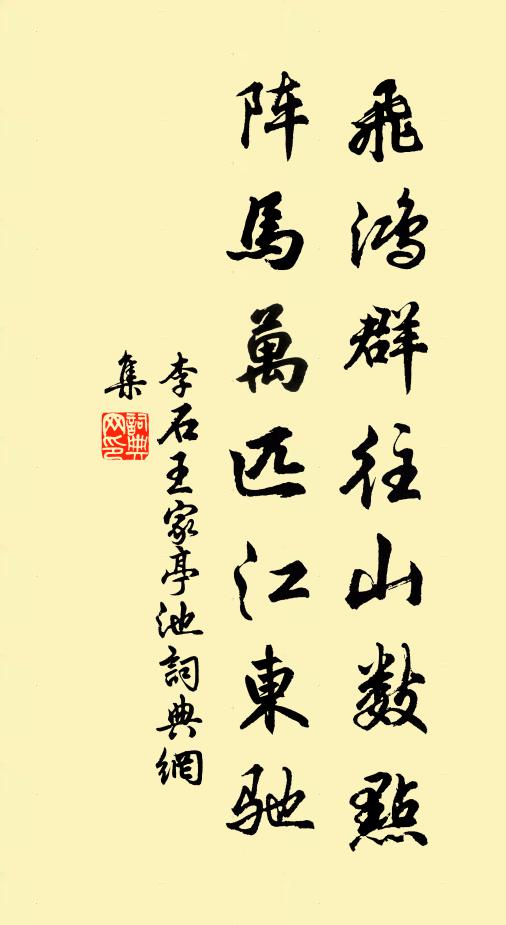 飛鴻群往山數點
阵馬萬匹江東馳
李石王家亭池詞典網
集
詞典网印